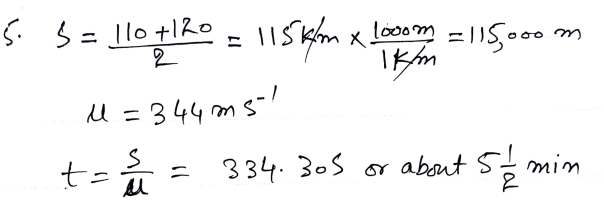 5. S = (110+120)/2 = 115 K/m × 1000m/1K/m = 115,000 m
u = 344 m s⁻¹
t = S/u = 334.30S or about 5 1/2 min